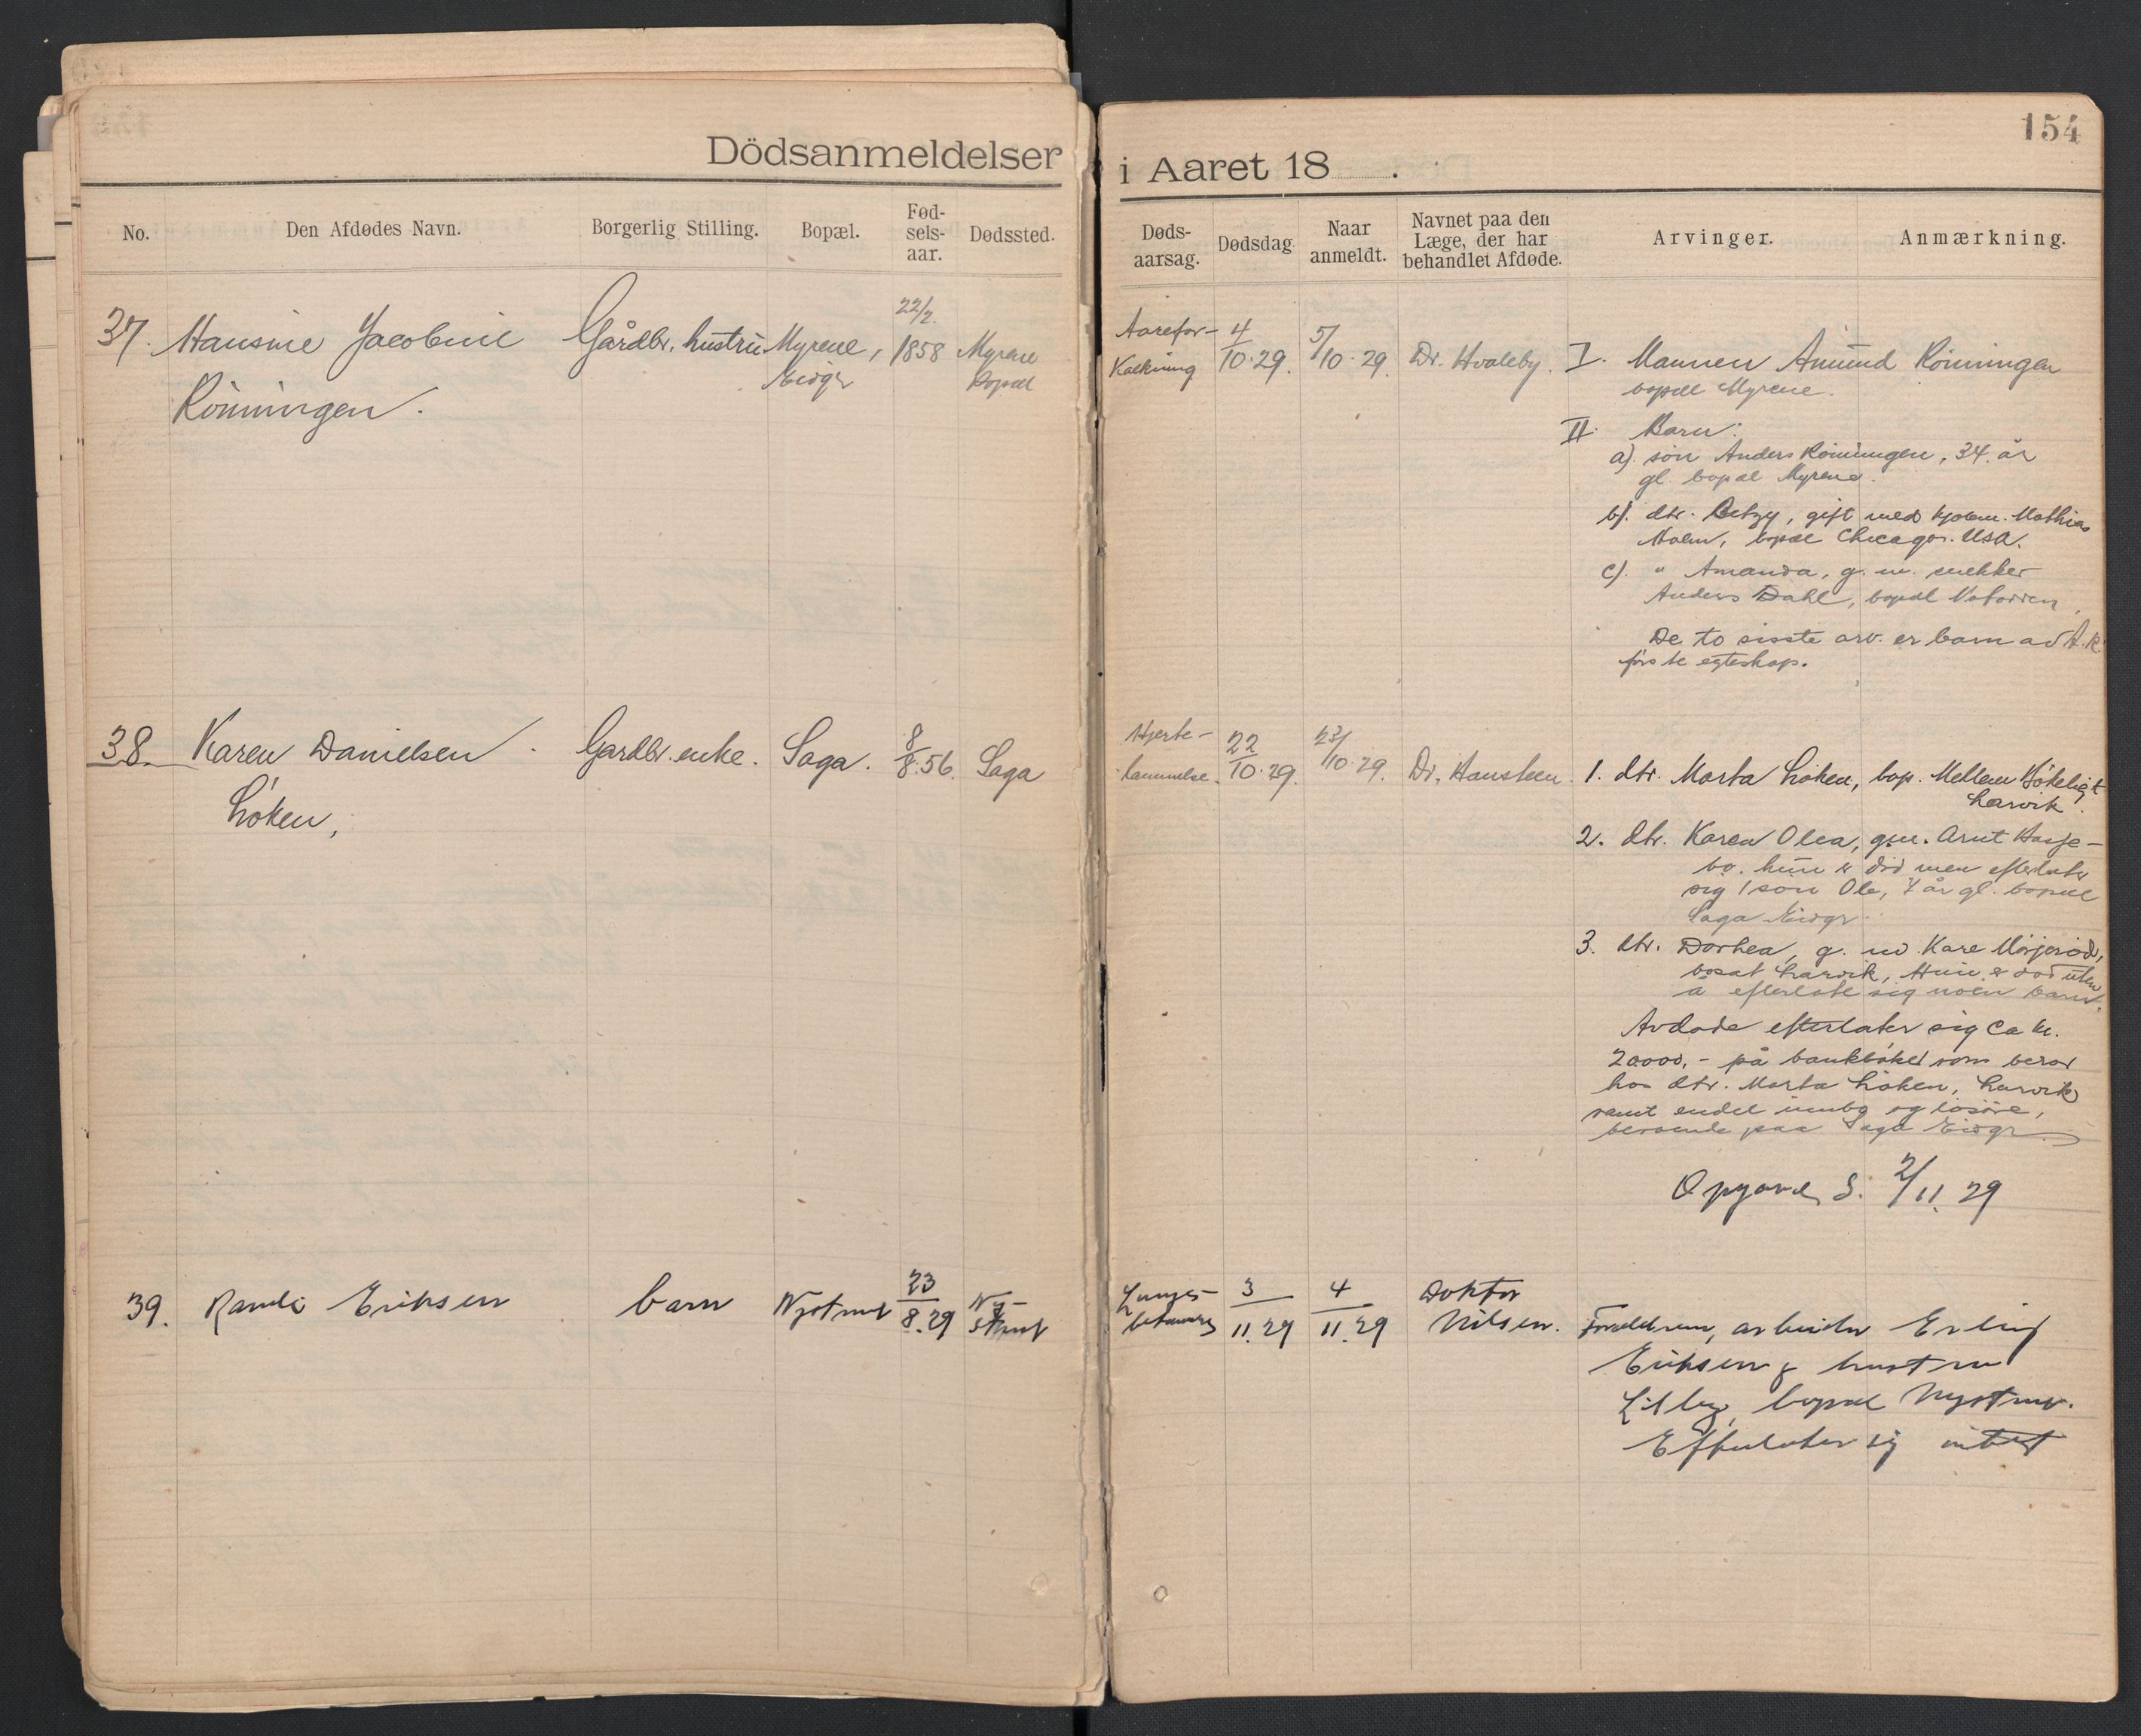 154
Dödsanmeldelser i Aaret 18 .
No. Den Afdødes Navn. Borgerlig Stilling. Bopæl. Fød-
sels-
aar. Dødssted. Døds-
aarsag. Dødsdag. Naar
anmeldt. Navnet paa den
Læge, der har
behandlet Afdøde. Arvinger. Anmærkning.
37. Hansine Jacobine
Rönningen.
Gårdbr. hustru
Myrene,
Eidgr
22/2.
1858
Myrene
Bopæl
Aarefor-
Kalkning
4/10.29.
5/10.29.
Dr. Hvaleby.
I. Mannen Amund Rönningen
bopæl Myrene.
II. Barn:
a). sön Anders Rönningen, 34 år
gl. bopæl Myrene.
b). dtr. Betzy, gift med Mathias
Holm, bopæl Chicago. USA.
c). " Amanda, g. m. snekker
Anders Dahl, bopæl
De to sisste arv. er barn av A. R.
förste egteskap.
38. Karen Danielsen
Löken,
Gardbr. enke.
Saga.
8/8.56.
Saga
Hjerte-
lammelse.
22/10.29.
23/10.29.
Dr. Hansteen.
1. dtr. Marta Löken, bop. Mellem Bökeligt
Larvik.
2. dtr. Karen Olea, gm. Arnt Hasje-
bo. hun er död men efterlater
sig 1 sön Ole, år gl. bopæl
Saga Eidgr.
3. dtr. Dorthea, g. m. Kare
bosat Larvik, Hun er död uten
å efterlate sig noen barn.
Avdøde efterlater sig ca kr.
20000,- på bankböker som beror
hos dtr. Marta Löken, Larvik
samt endel innbo og lösöre,
beroende paa Saga Eidgr
Opgave S. 2/11. 29
39. Randi Eriksen
barn
Nystrup
23/8.29
Ny-
strup
Lunge-
betennelse
3/11.29
4/11.29
Doktor
Nilsen.
Foreldrene, arbeider Erling
Eriksen & hustru
Lilly, bopæl Nystrup.
Efterlater sig intet